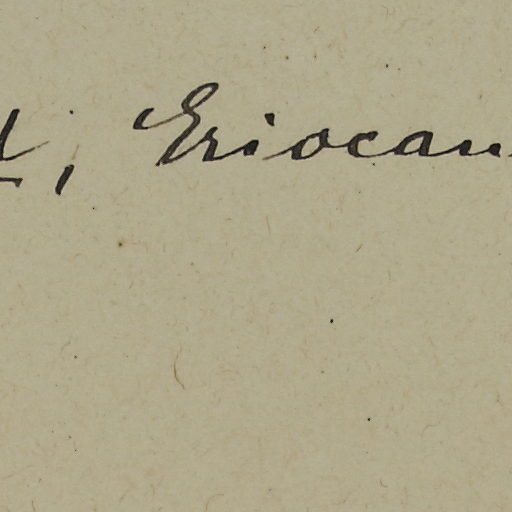 ; Eriocau